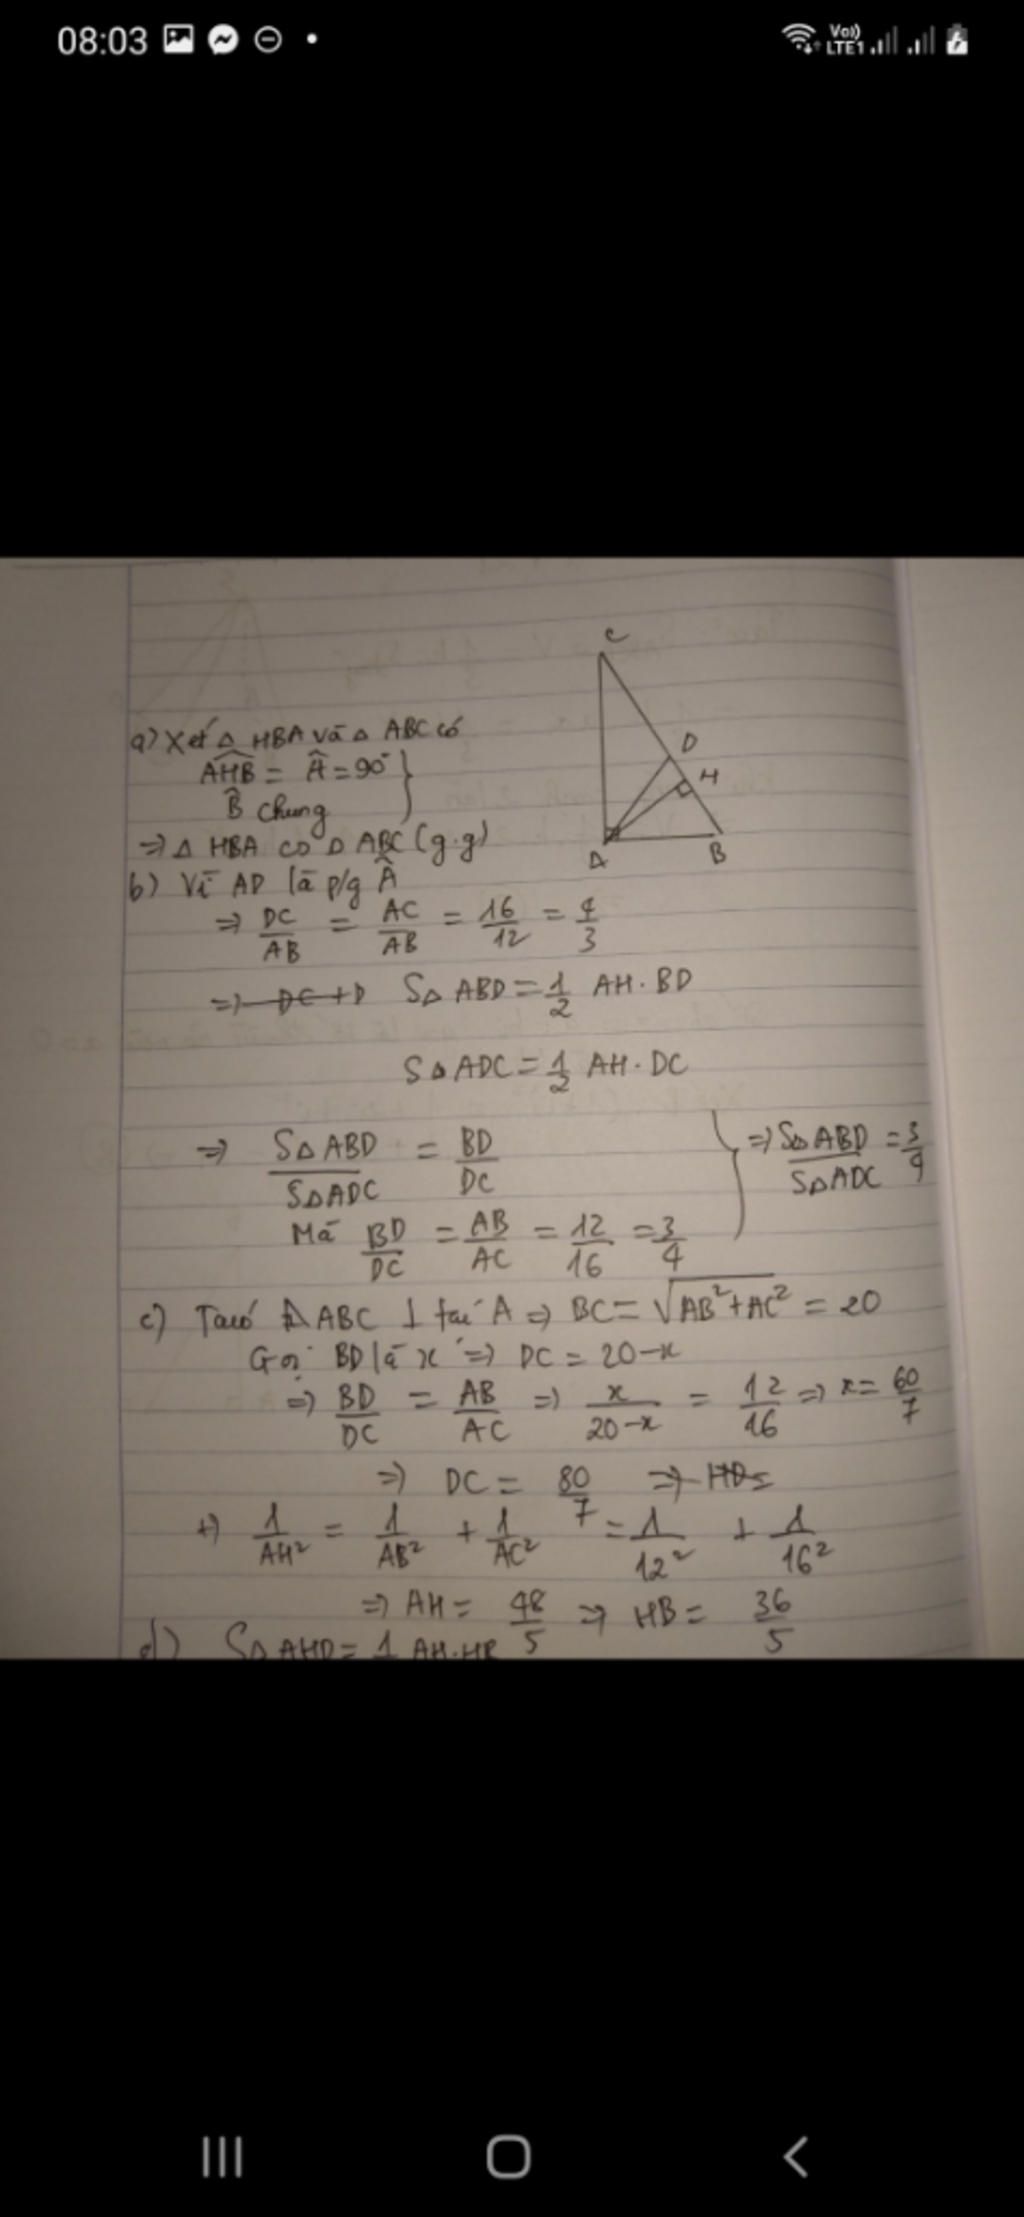 08:03
Vo) LTE1
C
D
H
A
B
a) Xét Δ HBA và Δ ABC có
AHB = A = 90°
B chung
=> Δ HBA ∽ Δ ABC (g.g)
b) Vì AD là p/g Â
=> DC/AB = AC/AB = 16/12 = 4/3
=> DC + D SΔ ABD = 1/2 AH. BD
SΔ ADC = 1/2 AH. DC
=> SΔ ABD/SΔ ADC = BD/DC
=> SΔ ABD/SΔ ADC = 3/4
Mà BD/DC = AB/AC = 12/16 = 3/4
c) Ta có Δ ABC ⊥ tại A => BC = √AB²+AC² = 20
Gọi BD là x => DC = 20-x
=> BD/DC = AB/AC => x/20-x = 12/16 => x = 60/7
=> DC = 80/7 => HD =
+) 1/AH² = 1/AB² + 1/AC² = 1/12² + 1/16²
=> AH = 48/5 => HB = 36/5
d) SΔ AHD = 1 AH.